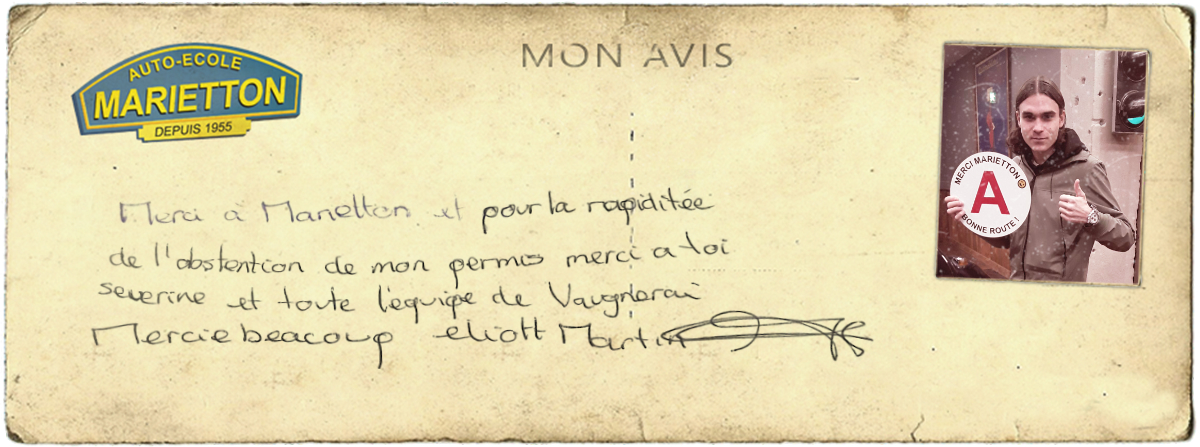 AUTO-ECOLE
MARIETTON
DEPUIS 1955
MON AVIS
MERCI MARIETTON
A
BONNE ROUTE !
Merci à Marietton et pour la rapiditée
de l'obstention de mon permis merci a toi
severine et toute l'equipe de Vaugnerai
Mercie beacoup eliott Martin